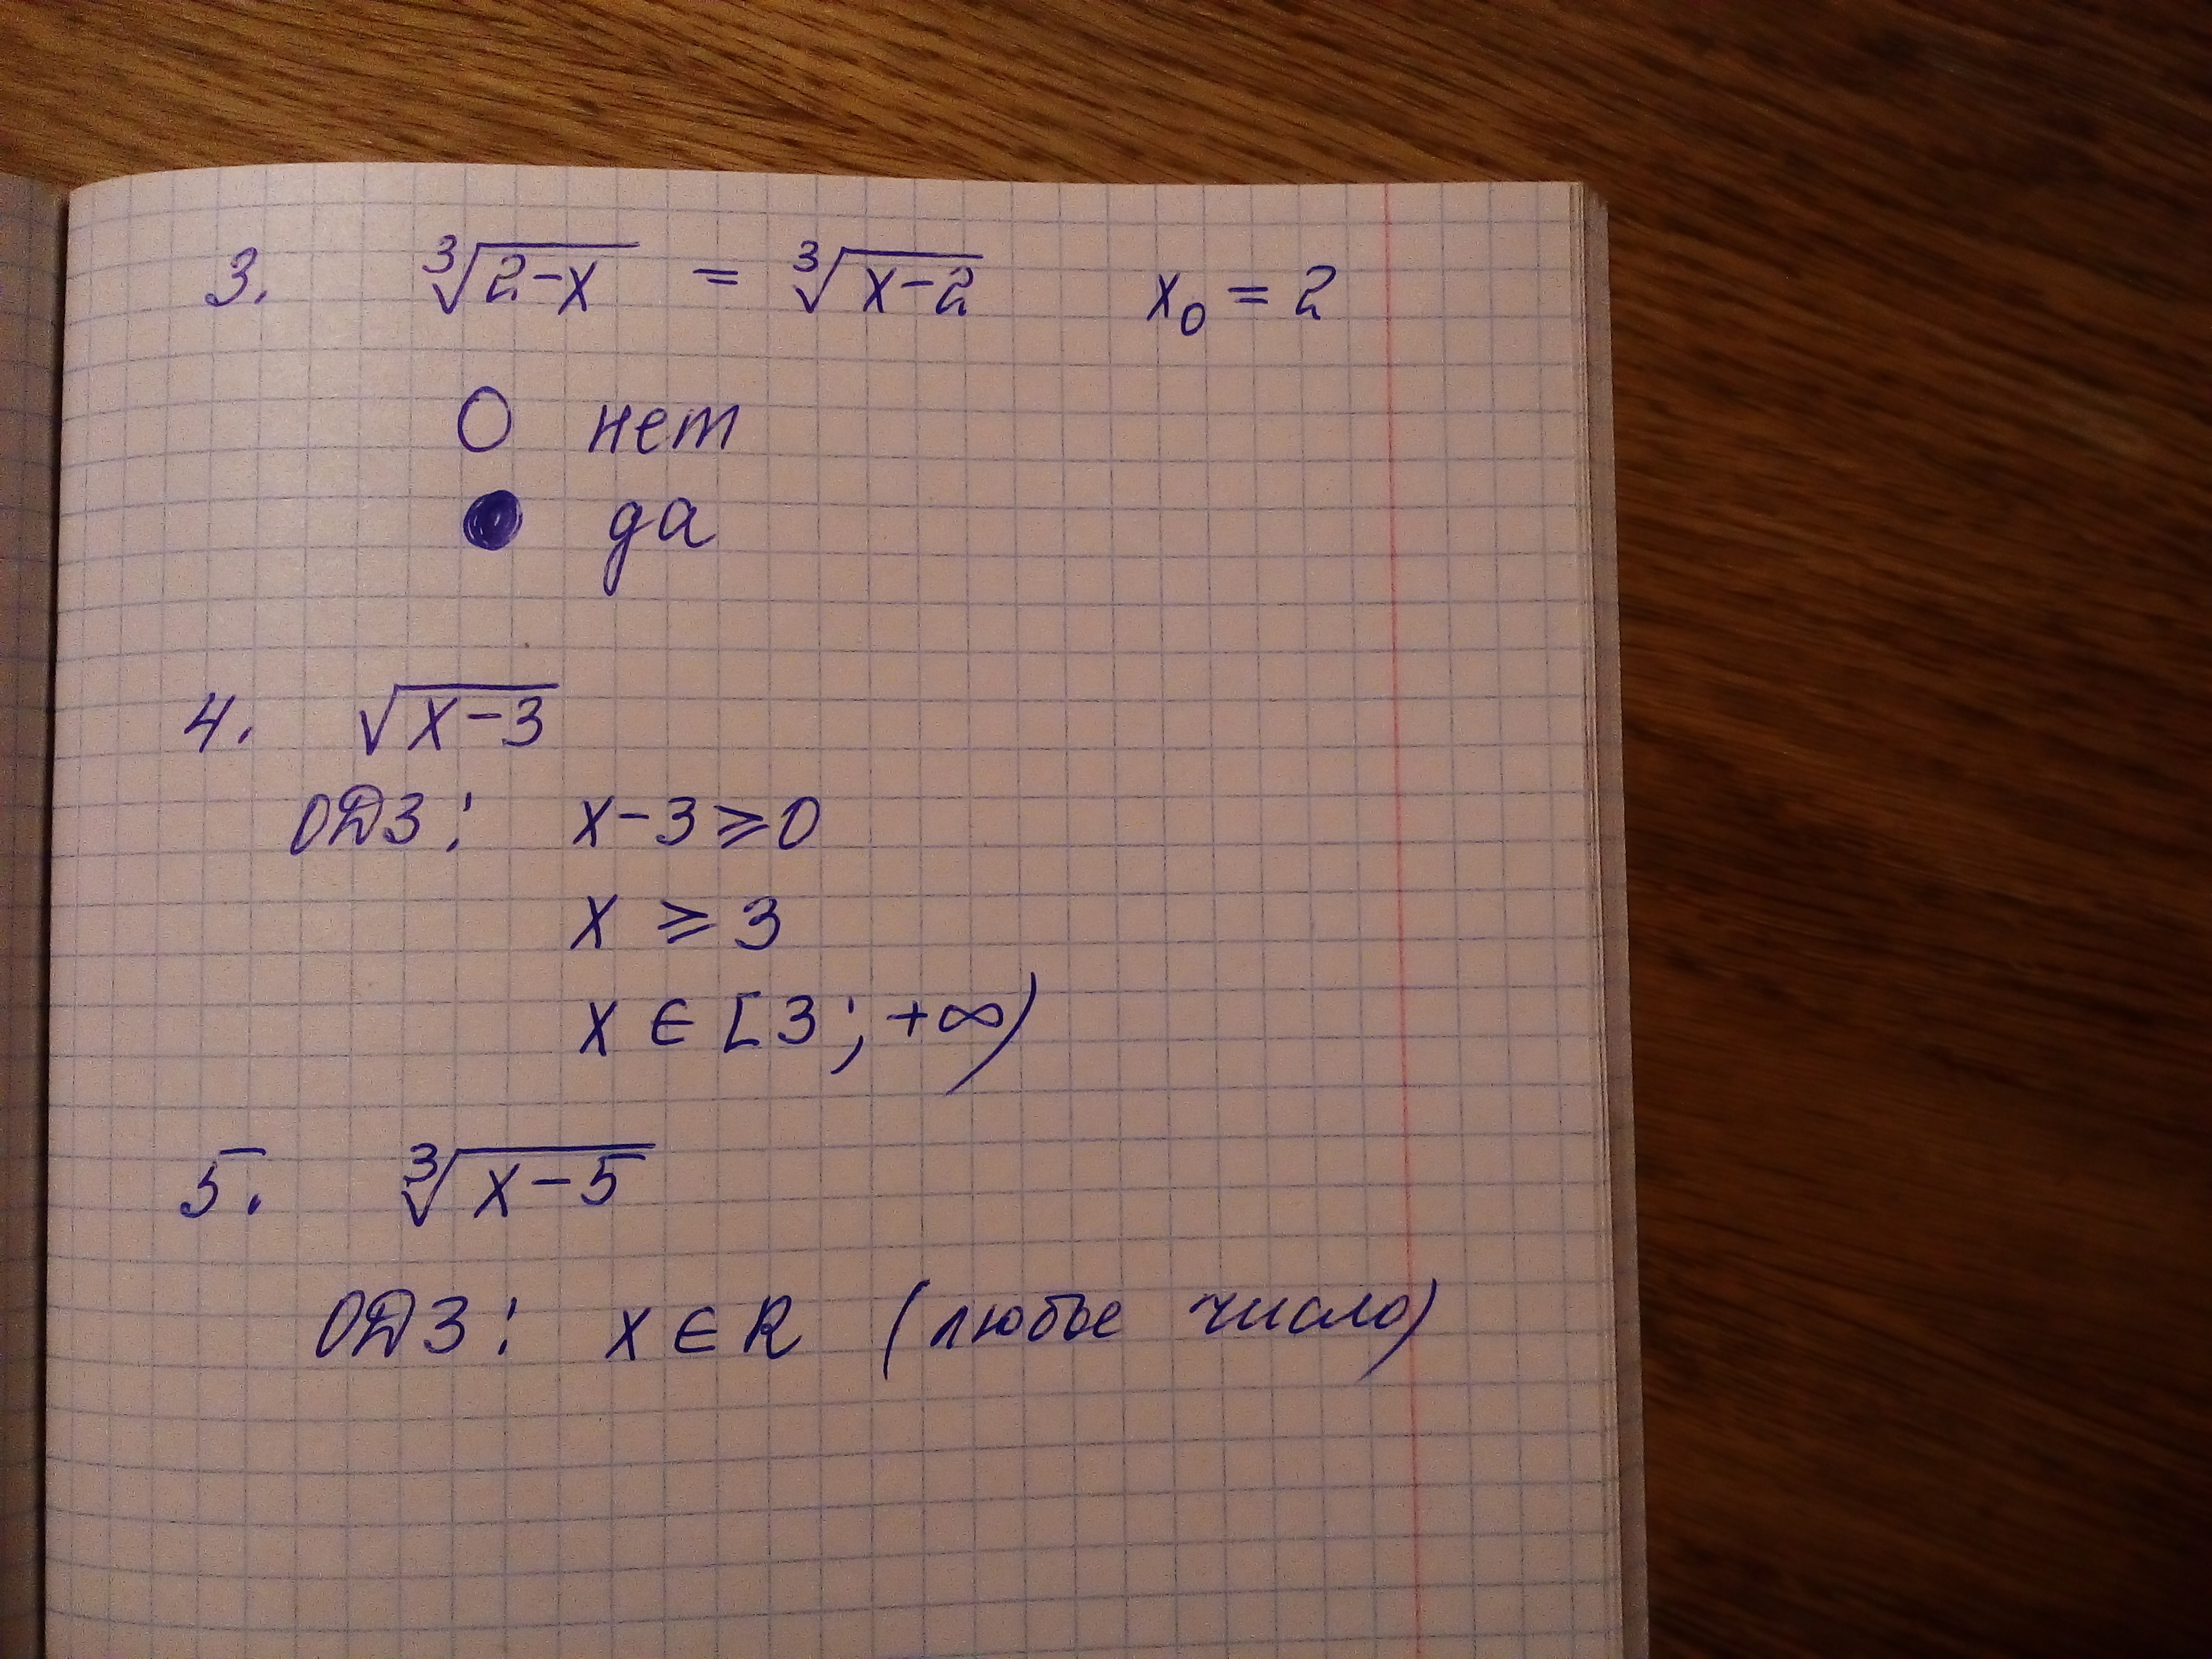 3. ∛(2-x) = ∛(x-2) x₀ = 2
нет
да
4. √(x-3)
ОДЗ: x-3 ⩾ 0
x ⩾ 3
x ∈ [3; +∞)
5. ∛(x-5)
ОДЗ: x ∈ R (любое число)